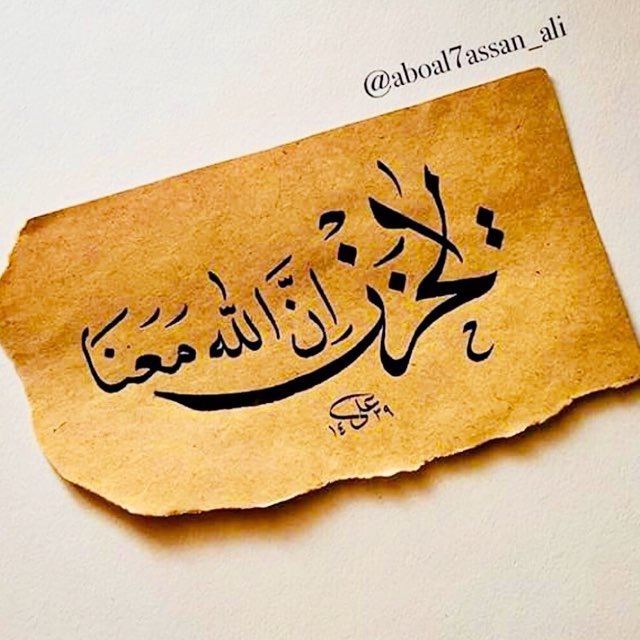 @aboal7assan_ali
لا تحزن إنَّ الله مَعَنَا
علي
١٤٣٩